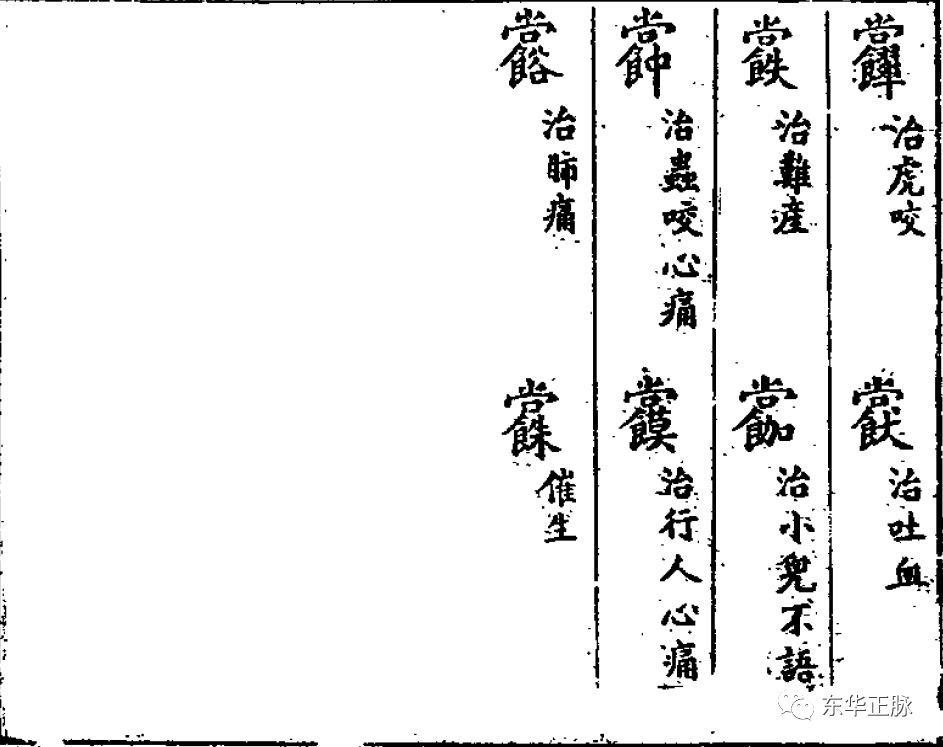 治虎咬
治吐血
治難産
治小兒不語
治蟲咬心痛
治行人心痛
治肺痛
催生
东华正脉